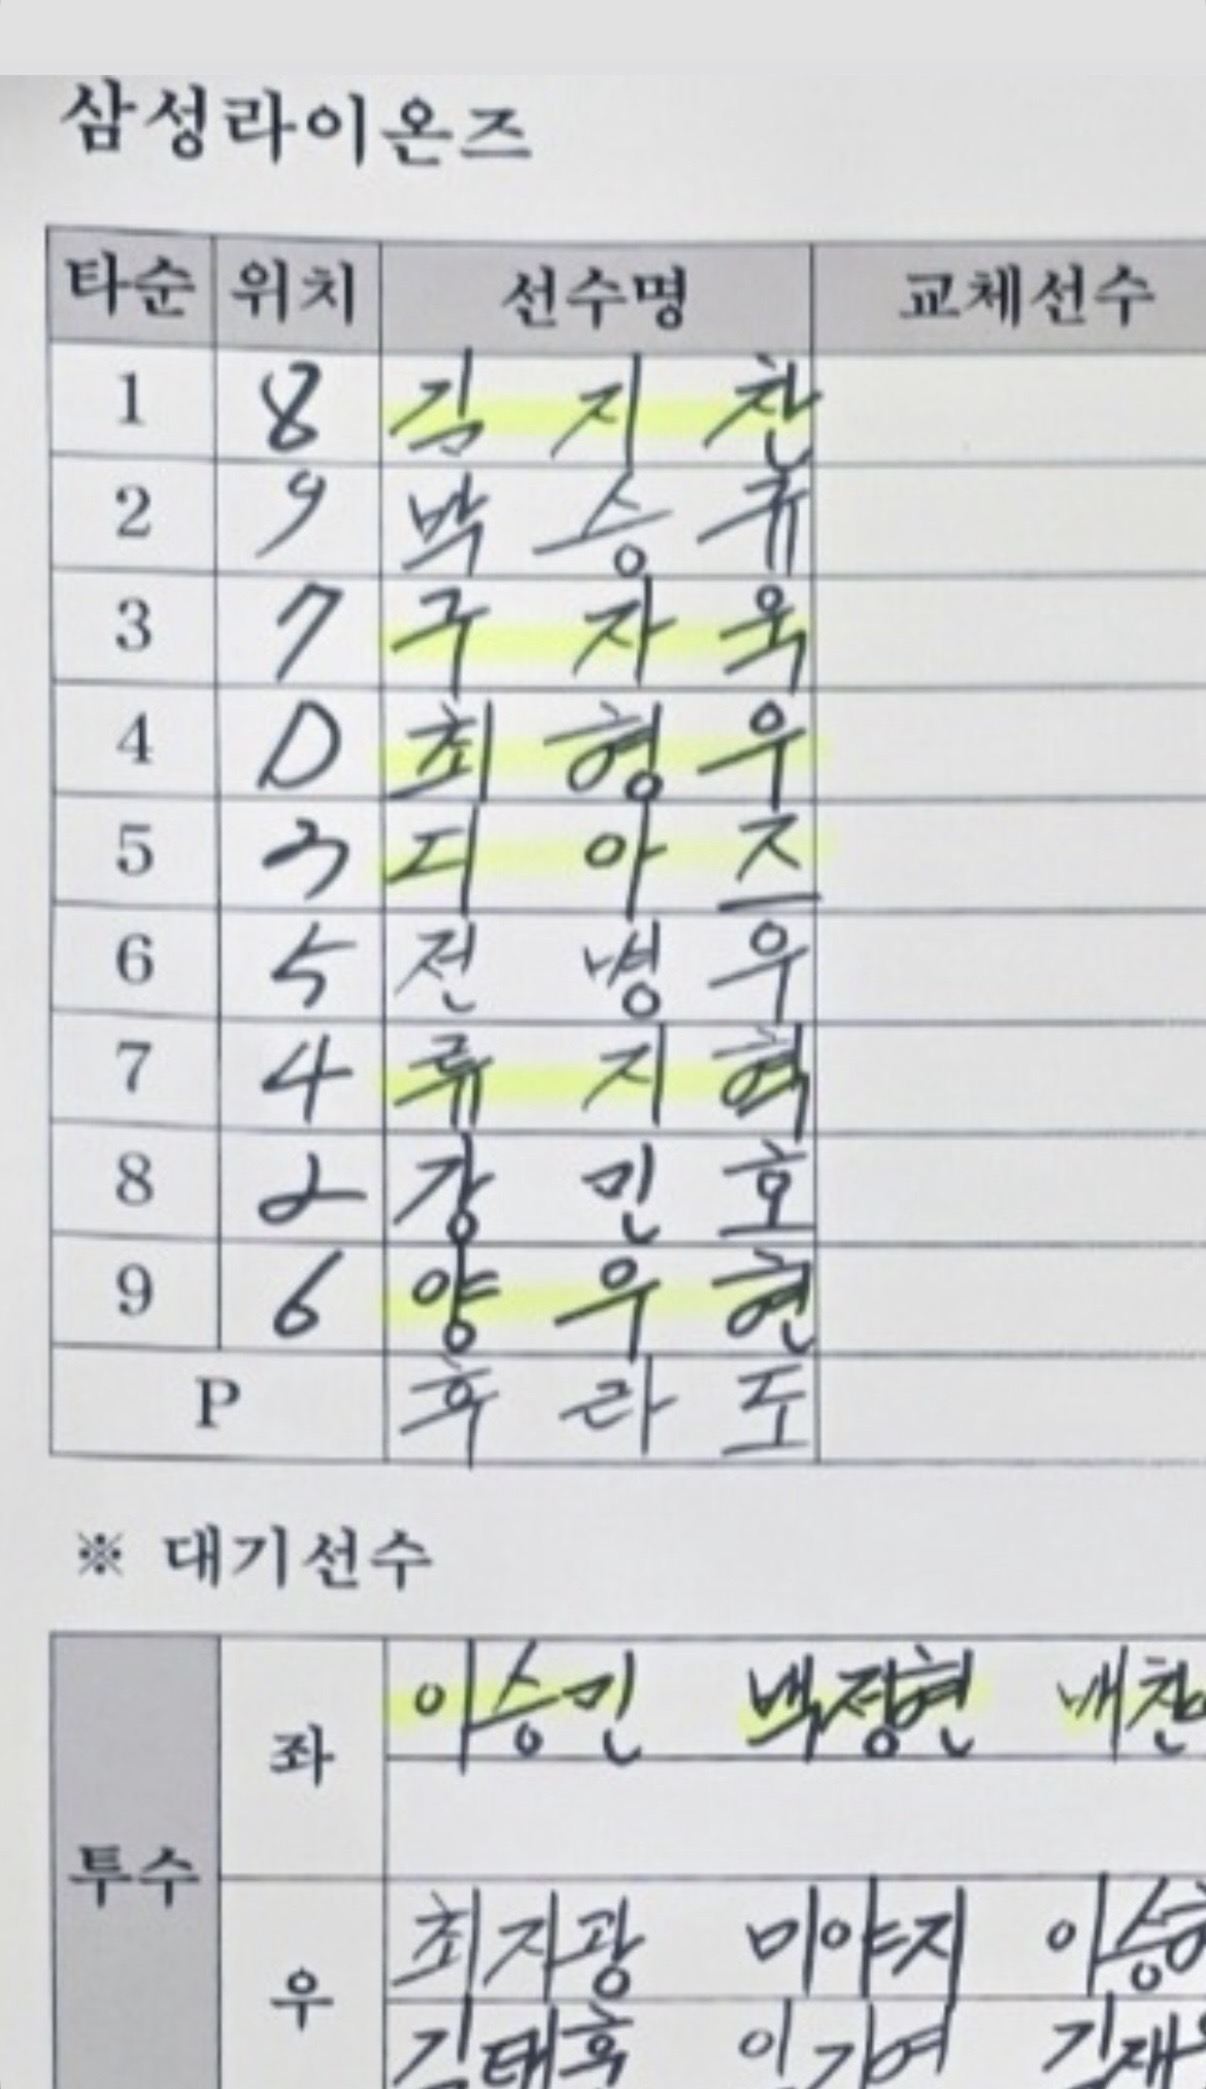 삼성라이온즈
타순 위치 선수명 교체선수
1 8 김지찬
2 9 박승규
3 7 구자욱
4 D 최형우
5 3 디아즈
6 5 전병우
7 4 류지혁
8 2 강민호
9 6 양우현
P 후라도
※ 대기선수
투수 좌 이승민 백정현 배찬
우 최지광 미야지 이승현
김태훈 김재